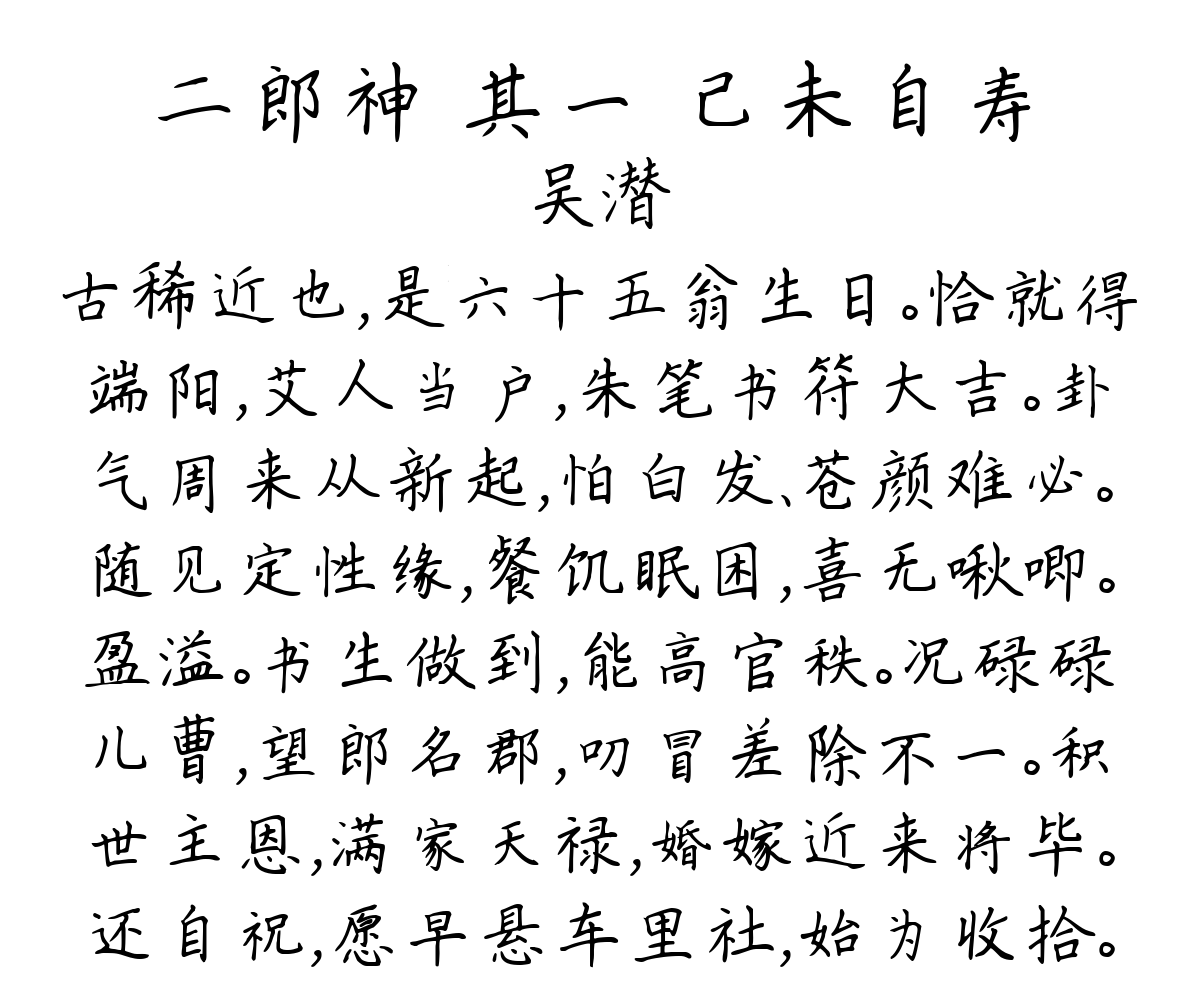 二郎神 其一 己未自寿
吴潜
古稀近也,是六十五翁生日。恰就得
端阳,艾人当户,朱笔书符大吉。卦
气周来从新起,怕白发、苍颜难必。
随见定性缘,餐饥眠困,喜无啾唧。
盈溢。书生做到,能高官秩。况碌碌
儿曹,望郎名郡,叨冒差除不一。积
世主恩,满家天禄,婚嫁近来将毕。
还自祝,愿早悬车里社,始为收拾。